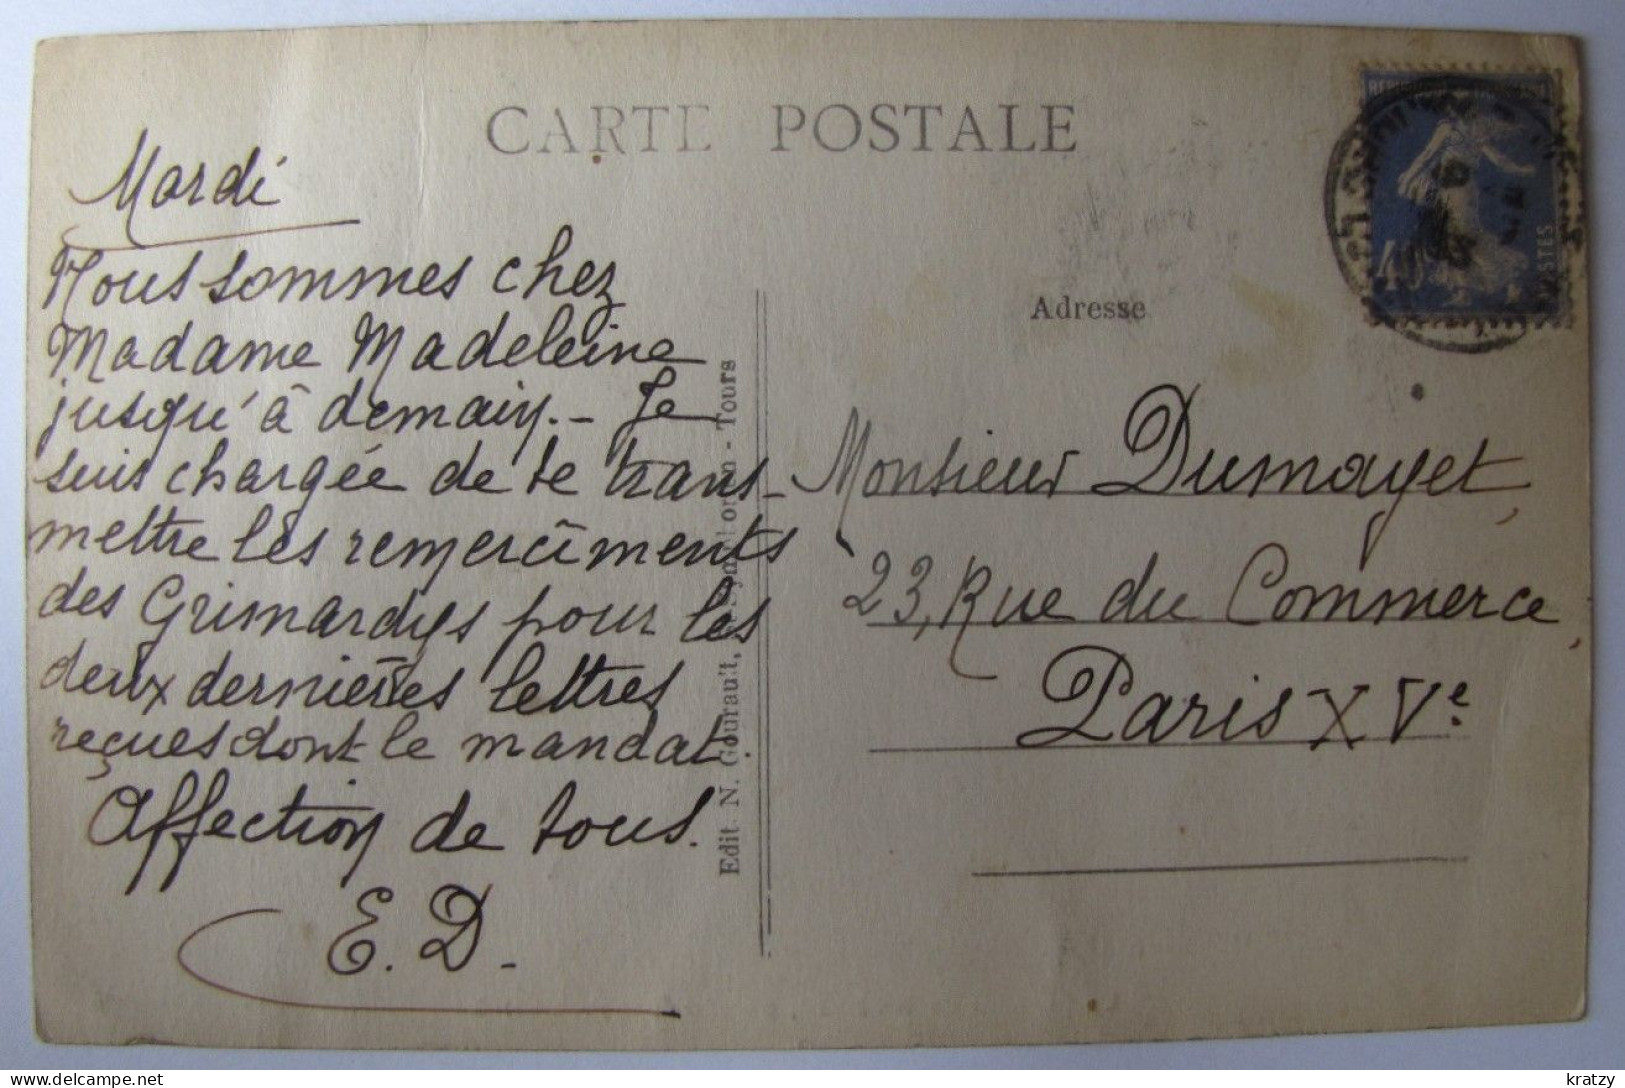 CARTE POSTALE
Mardi
Nous sommes chez
Madame Madeleine
jusqu'à demain. - Je
suis chargée de te trans-
mettre les remerciments
des Grimardys pour les
deux dernières lettres
reçues dont le mandat.
Affection de tous.
E. D.
Edit. N. Gourault, - Tours
Adresse
Monsieur Dumayet,
23, Rue du Commerce,
Paris XVe.
40
POSTES
kratzy